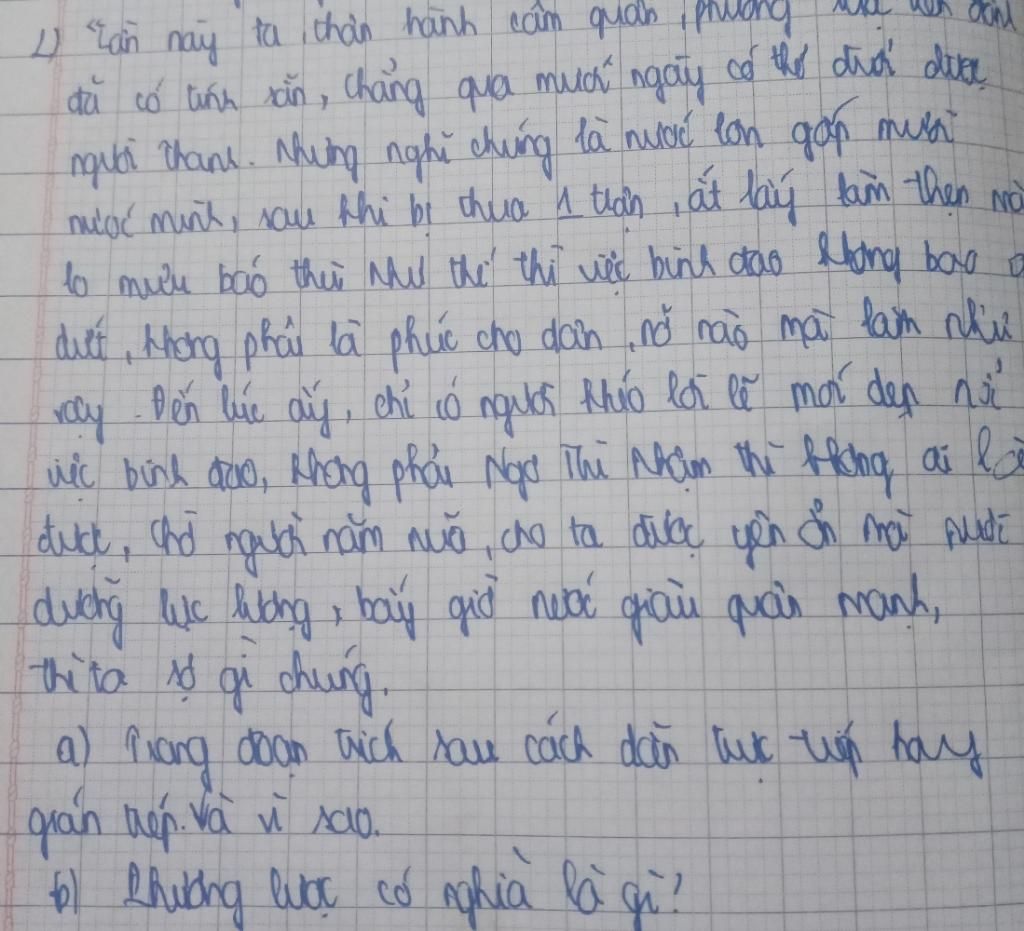 1) "Lần này ta thân hành cầm quân, phương
đã có tính sẵn, chẳng qua mươi ngày có thể đuổi được
người Thanh. Nhưng nghĩ chúng là nước lớn gấp mười
nước mình, sau khi bị thua 1 trận, ắt lấy làm thẹn mà
lo mưu báo thù. Như thế thì việc binh đao không bao
dứt, không phải là phúc cho dân, nỡ nào mà làm như
vậy. Đến lúc ấy, chỉ có người khéo lời lẽ mới dẹp nổi
việc binh đao, không phải Ngô Thì Nhậm thì không ai
được, chờ người năm nữa, cho ta được yên ổn mà nuôi
dưỡng lực lượng, bấy giờ nước giàu quân mạnh,
thì ta sợ gì chúng.
a) Trong đoạn trích sau cách dẫn trực tiếp hay
gián tiếp. Và vì sao.
b) Phương lược có nghĩa là gì?